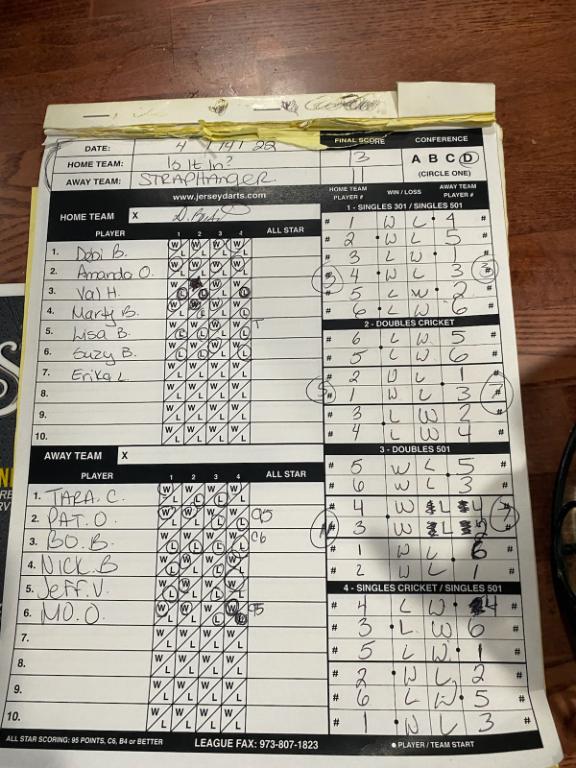 DATE: 4 / 14 / 22 FINAL SCORE CONFERENCE
HOME TEAM: Is It In? 13 A B C D
AWAY TEAM: STRAPHANGER 11 (CIRCLE ONE)
www.jerseydarts.com
HOME TEAM PLAYER # WIN / LOSS AWAY TEAM PLAYER #
HOME TEAM X
PLAYER 1 2 3 4 ALL STAR
1. Debi B.
2. Amanda O.
3. Val H.
4. Marty B.
5. Lisa B.
6. Suzy B.
7. Erika L.
8.
9.
10.
AWAY TEAM X
PLAYER 1 2 3 4 ALL STAR
1. TARA. C.
2. PAT. O. 95
3. BO. B. C6
4. NICK. B
5. Jeff. V.
6. MO. O. 95
7.
8.
9.
10.
1 - SINGLES 301 / SINGLES 501
# 1 W L 4 #
# 2 W L 5 #
# 3 L W 1 #
# 4 W L 3 #
# 5 L W 2 #
# 6 L W 6 #
2 - DOUBLES CRICKET
# 6 L W 5 #
# 5 L W 6 #
# 2 W L 1 #
# 1 W L 3 #
# 3 L W 2 #
# 4 L W 4 #
3 - DOUBLES 501
# 5 W L 5 #
# 6 W L 3 #
# 4 W L 4 #
# 3 W L 2 #
# 1 W L 6 #
# 2 W L 1 #
4 - SINGLES CRICKET / SINGLES 501
# 4 L W 4 #
# 3 L W 6 #
# 5 L W 1 #
# 2 W L 2 #
# 6 L W 5 #
# 1 W L 3 #
ALL STAR SCORING: 95 POINTS, C6, B4 or BETTER LEAGUE FAX: 973-807-1823 ● PLAYER / TEAM START